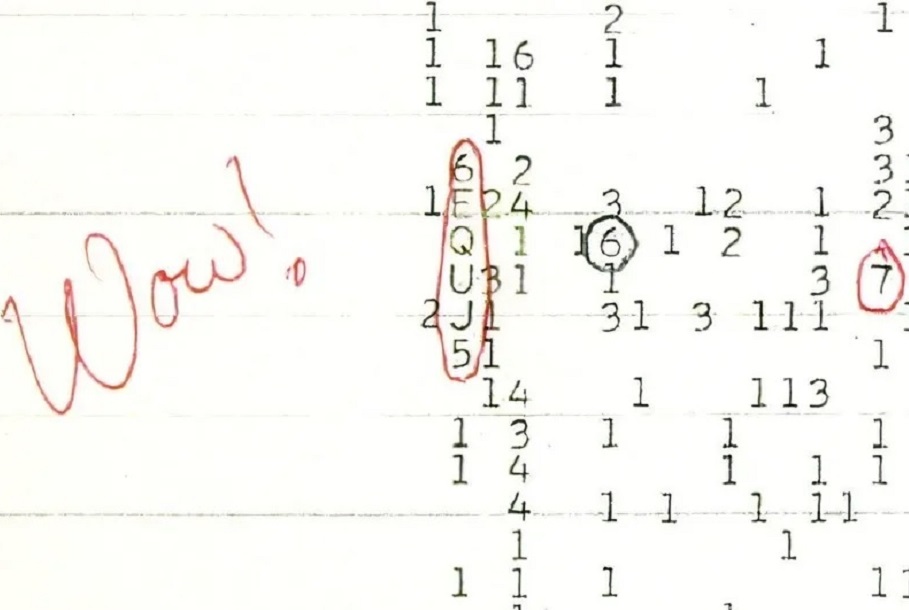 1 2 1
1 16 1 1
1 11 1 1
1 3
6 2 3
1E24 3 12 1 2
Wow! Q 1 16 1 2 1
U31 1 3 7
2J1 31 3 111
51 1
14 1 113
1 3 1 1 1
1 4 1 1 1
4 1 1 1 11
1 1
1 1 1 11